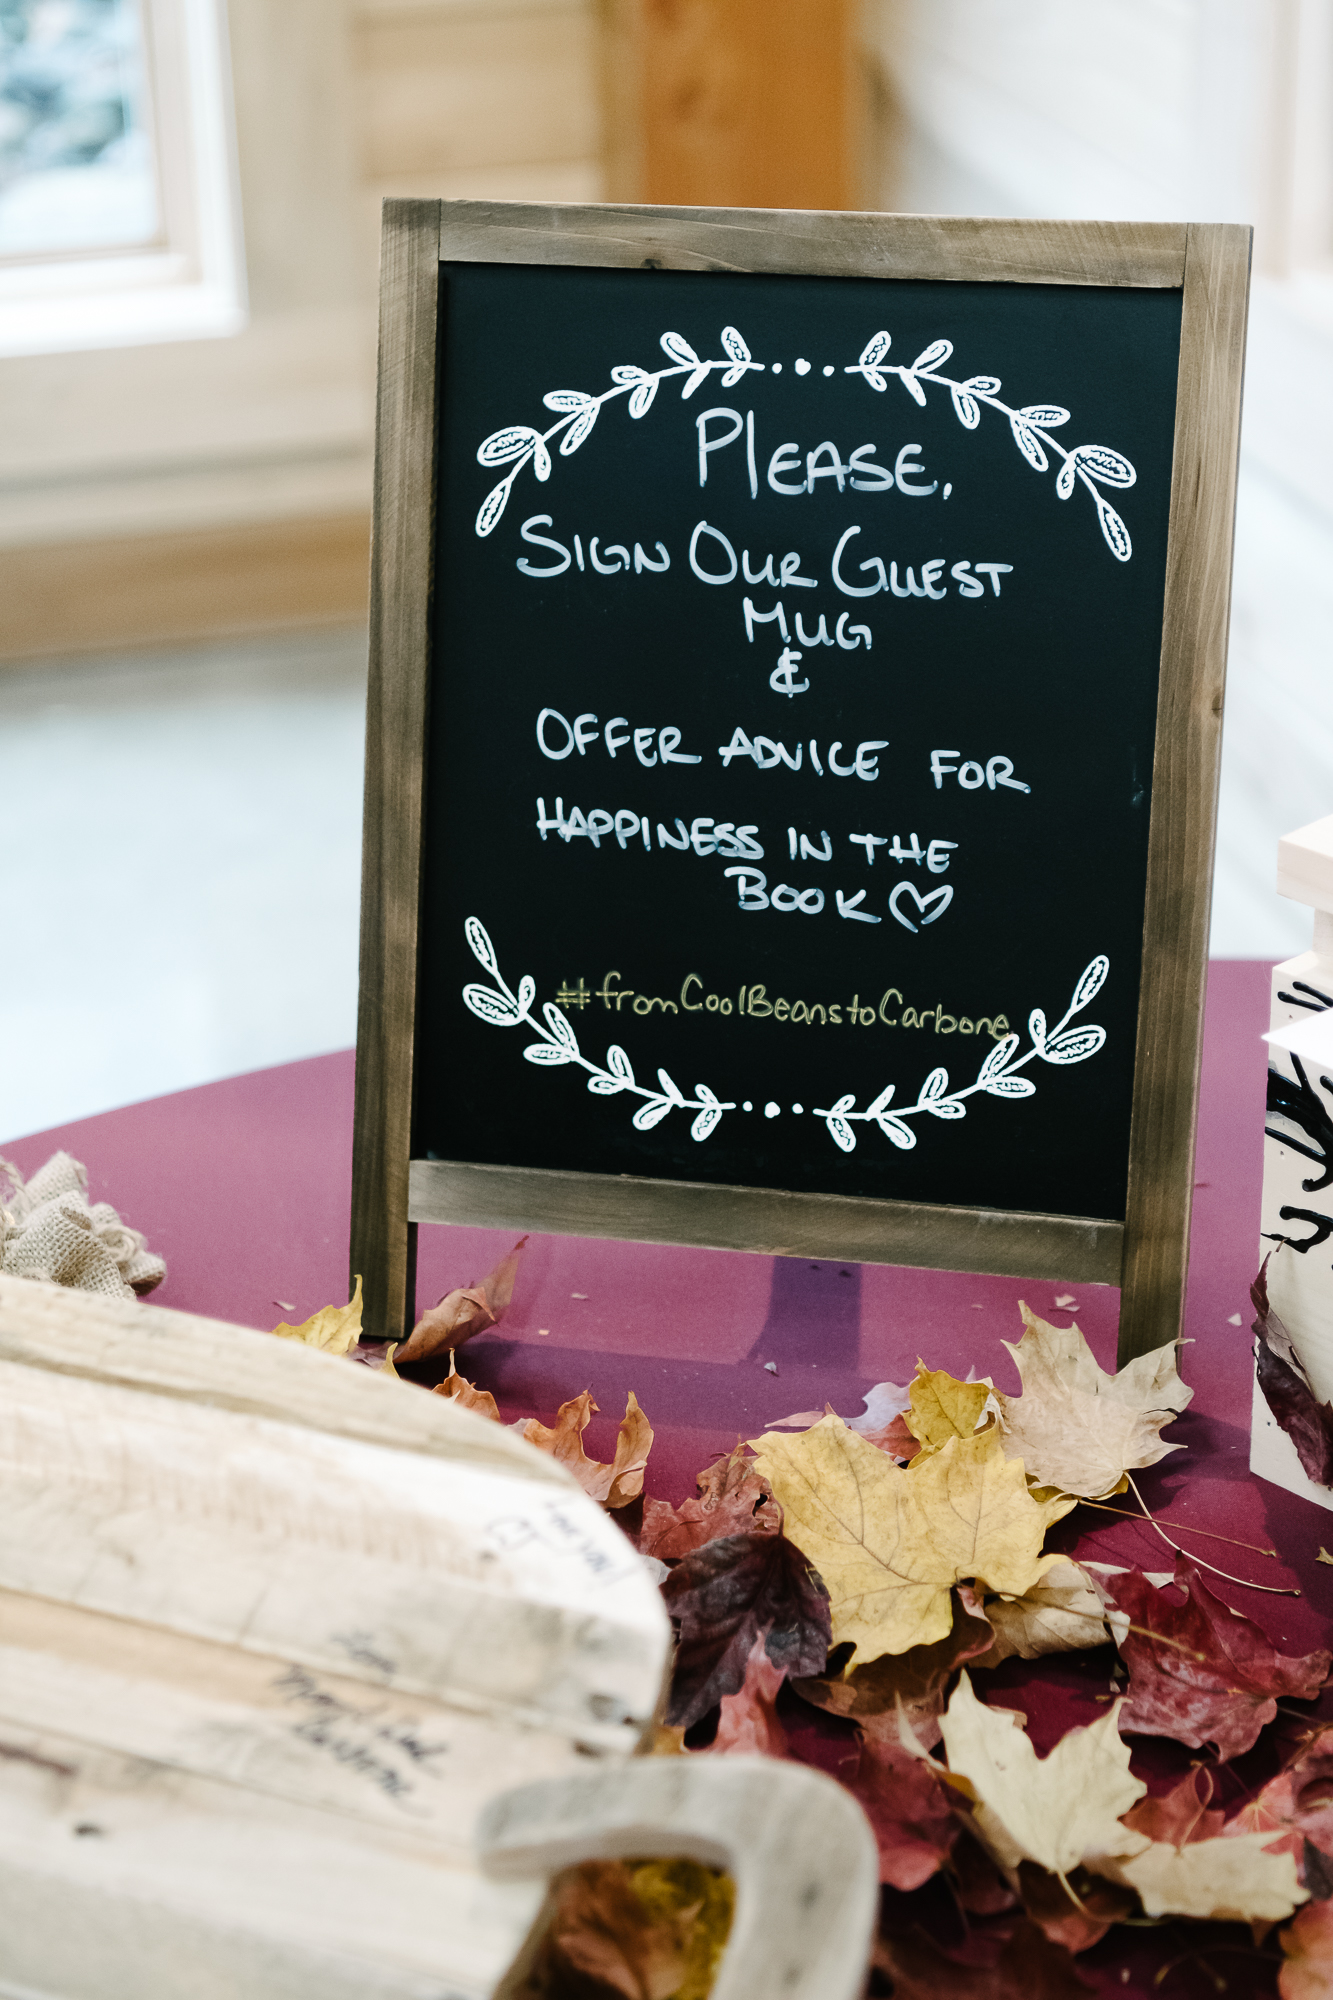 PlEASE,
SIGN OUR GUEST
MUG
&
OFFER ADVICE FOR
HAPPINESS IN THE
BOOK
#fromCoolBeanstoCarbone
Love you!
CJ